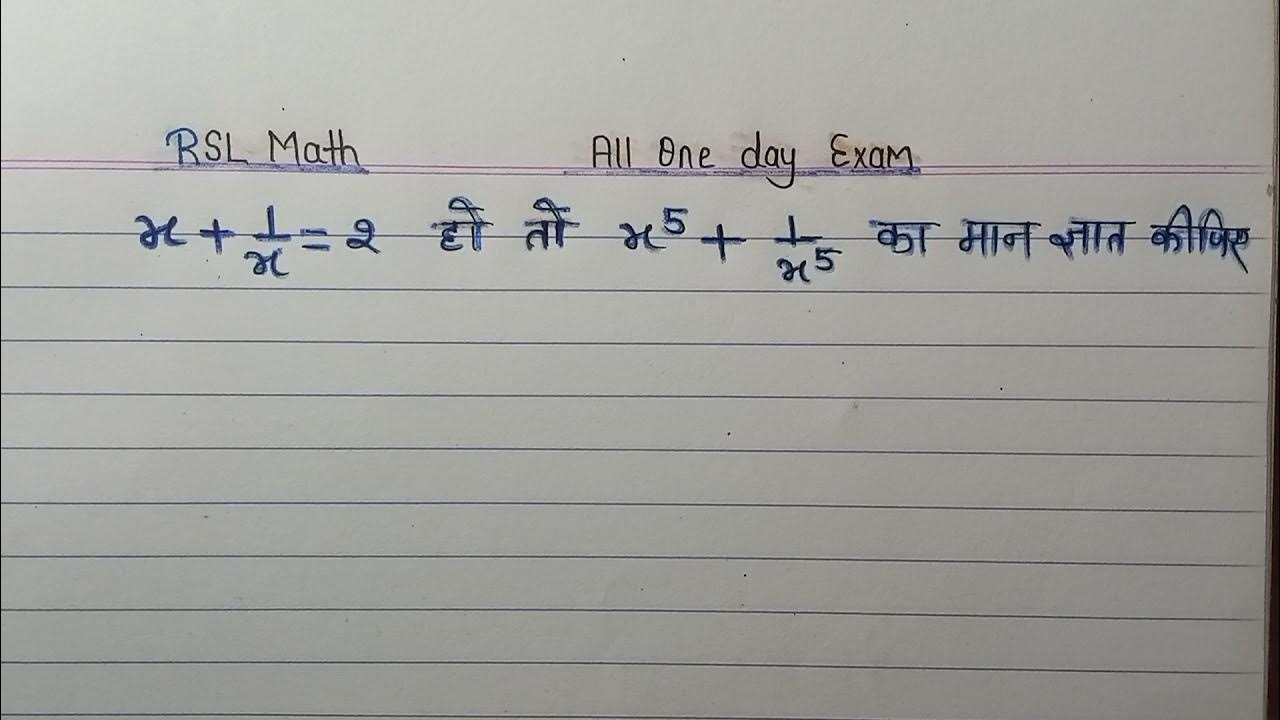 RSL Math All One day Exam
x + 1/x = 2 हो तो x⁵ + 1/x⁵ का मान ज्ञात कीजिए